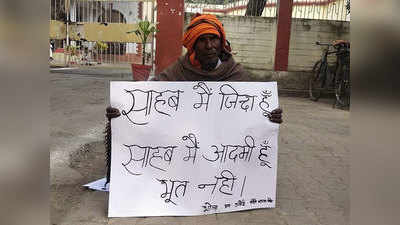 साहब मैं जिंदा हूँ
साहब मैं आदमी हूँ
भूत नहीं।